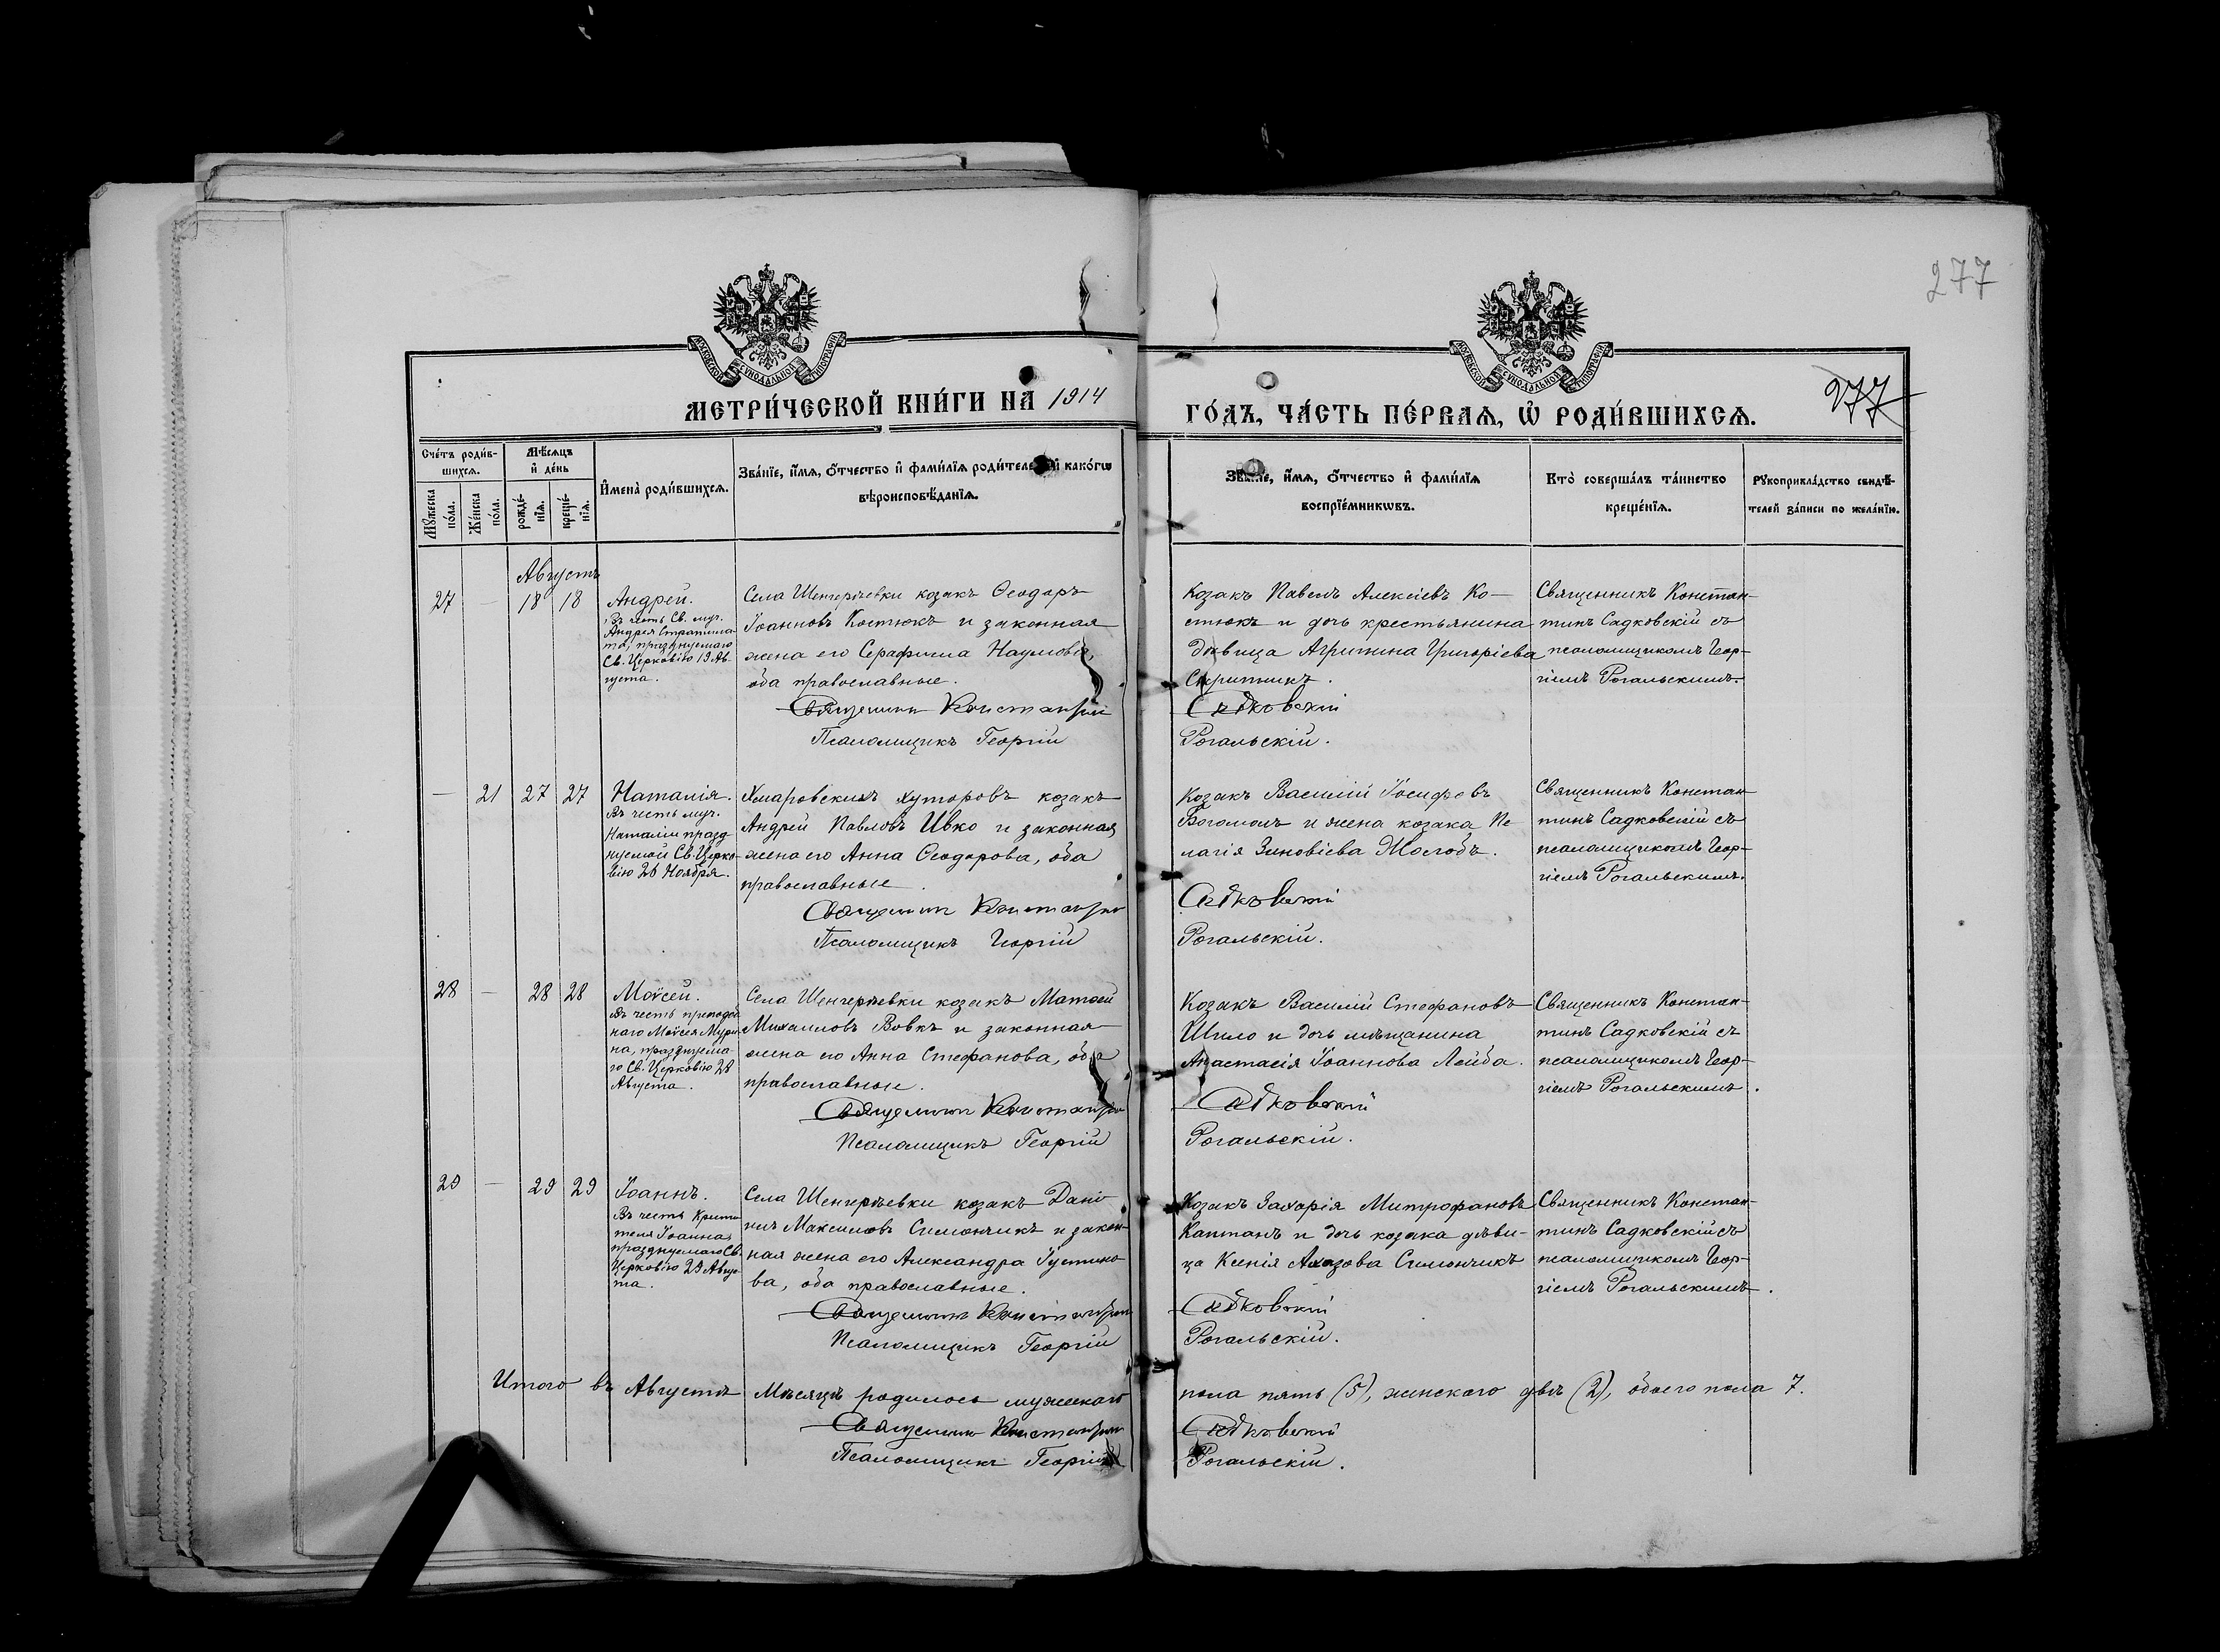 277
МОСКОВСКОЙ СѴНОДАЛЬНОЙ ТИПОГРАФІИ
МОСКОВСКОЙ СѴНОДАЛЬНОЙ ТИПОГРАФІИ
МЕТРИ́ЧЕСКОЙ КНИ́ГИ НА̀ 1914
ГО́ДЪ, ЧА́СТЬ ПЕ́РВАѦ, Ѡ҆ РОДИ́ВШИХСѦ.
277
Сче́тъ роди́в-
шихсѧ.
Мѣ́сѧцъ
и҆ де́нь
Мꙋ́жеска
по́ла.
Же́нска
по́ла.
рожде́-
нїѧ.
креще́-
нїѧ.
И҆мена̀ роди́вшихсѧ.
Зва́нїе, и҆́мѧ, ѻ҆́тчество и҆ фами́лїѧ роди́теле и҆ како́гѡ
вѣроисповѣ́данїѧ.
Зва́нїе, и҆́мѧ, ѻ҆́тчество и҆ фами́лїѧ
воспрїе́мникѡвъ.
Кто̀ соверша́лъ та́инство
креще́нїѧ.
Рꙋкоприкла́дство свидѣ́-
телей за́писи по жела́нїю.
Августъ
27 — 18 18
Андрей.
Въ честь Св. муч.
Андрея Стратила-
та, празднуемаго
Св. Церковію 19 Ав-
густа.
Села Шенгерѣевки козакъ Ѳеодоръ
Іоанновъ Костюкъ и законная
жена его Серафима Наумова,
оба православные.
Священникъ Константинъ
Псаломщикъ Георгій
Козакъ Павелъ Алексіевъ Ко-
стюкъ и дочь крестьянина
дѣвица Агрипина Григоріева
Скрипникъ.
Садковскій
Рогальскій.
Священникъ Констан-
тинъ Садковскій съ
псаломщикомъ Геор-
гіемъ Рогальскимъ.
— 21 27 27
Наталія.
Въ честь муч.
Наталіи празд
нуемой Св. Церко-
вію 26 Ноября.
Хмаровскихъ хуторовъ козакъ
Андрей Павловъ Ивко и законная
жена его Анна Ѳеодорова, оба
православные.
Священникъ Константинъ
Псаломщикъ Георгій
Козакъ Василій Іосифовъ
Богомолъ и жена козака Пе
лагія Зиновіева Жолобъ.
Садковскій
Рогальскій.
Священникъ Констан
тинъ Садковскій съ
псаломщикомъ Геор-
гіемъ Рогальскимъ.
28 — 28 28
Моѵсей.
Въ честь преподоб
наго Моѵсея Мури
на, празднуема-
го Св. Церковію 28
Августа.
Села Шенгерѣевки козакъ Матѳей
Михаиловъ Вовкъ и законная
жена его Анна Стефанова, оба
православные.
Священникъ Константинъ
Псаломщикъ Георгій
Козакъ Василій Стефановъ
Шило и дочь мѣщанина
Анастасія Іоаннова Лойба.
Садковскій
Рогальскій.
Священникъ Констан-
тинъ Садковскій съ
псаломщикомъ Геор-
гіемъ Рогальскимъ.
29 — 29 29
Іоаннъ.
Въ честь Крести
теля Іоанна,
празднуемаго Св.
Церковію 29 Авгус
та.
Села Шенгерѣевки козакъ Дані-
илъ Максимовъ Симончикъ и закон-
ная жена его Александра Іустино-
ва, оба православные.
Священникъ Константинъ
Псаломщикъ Георгій
Козакъ Захарія Митрофановъ
Каптанъ и дочь козака дѣви-
ца Ксенія Симончикъ
Садковскій
Рогальскій.
Священникъ Констан-
тинъ Садковскій съ
псаломщикомъ Геор-
гіемъ Рогальскимъ.
Итого въ Августѣ Мѣсяцѣ родилось мужескаго
пола пять (5), женского двѣ (2), обоего пола 7.
Священникъ Константинъ
Садковскій
Псаломщикъ Георгій
Рогальскій.